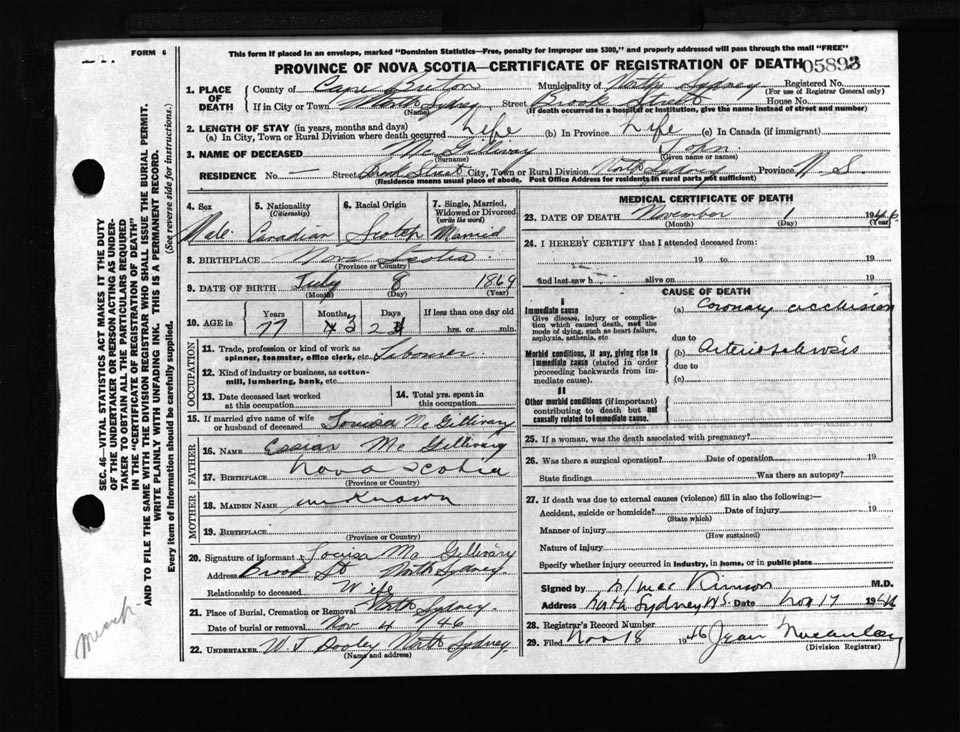 FORM 6
This form if placed in an envelope, marked "Dominion Statistics—Free, penalty for improper use $300," and properly addressed will pass through the mail "FREE"
PROVINCE OF NOVA SCOTIA—CERTIFICATE OF REGISTRATION OF DEATH 05893
1. PLACE OF DEATH
County of Cape Breton Municipality of North Sydney Registered No.
(For use of Registrar General only)
If in City or Town North Sydney Street Brook Street House No.
(Name) (If death occurred in a hospital or institution, give the name instead of street and number)
2. LENGTH OF STAY (in years, months and days)
(a) In City, Town or Rural Division where death occurred Life (b) In Province Life (c) In Canada (if immigrant)
3. NAME OF DECEASED McGillivary John
(Surname) (Given name or names)
RESIDENCE No. — Street Brook Street City, Town or Rural Division North Sydney Province N. S
(Residence means usual place of abode. Post Office Address for residents in rural parts not sufficient)
4. Sex
Male
5. Nationality
(Citizenship)
Canadian
6. Racial Origin
Scotch
7. Single, Married, Widowed or Divorced
(write the word)
Married
8. BIRTHPLACE Nova Scotia
(Province or Country)
9. DATE OF BIRTH July 8 1869
(Month) (Day) (Year)
10. AGE in
Years Months Days If less than one day old
77 3 23 hrs. or min.
OCCUPATION
11. Trade, profession or kind of work as spinner, teamster, office clerk, etc. Labourer
12. Kind of industry or business, as cotton-mill, lumbering, bank, etc.
13. Date deceased last worked at this occupation
14. Total yrs. spent in this occupation
15. If married give name of wife or husband of deceased Louisa McGillivary
FATHER
16. NAME McGillivary
17. BIRTHPLACE Nova Scotia
(Province or Country)
MOTHER
18. MAIDEN NAME unknown
19. BIRTHPLACE
(Province or Country)
20. Signature of informant Louisa Mc Gillivary
Address Brook St North Sydney
Relationship to deceased Wife
21. Place of Burial, Cremation or Removal North Sydney
Date of burial or removal Nov 4 /46
22. UNDERTAKER W. J North Sydney
(Name and address)
MEDICAL CERTIFICATE OF DEATH
23. DATE OF DEATH November 1 1946
(Month) (Day) (Year)
24. I HEREBY CERTIFY that I attended deceased from:
19 to 19
and last saw h alive on 19
CAUSE OF DEATH
I
Immediate cause (a) Coronary occlusion
Give disease, injury or complication which caused death, not the mode of dying, such as heart failure, asphyxia, asthenia, etc
due to
Morbid conditions, if any, giving rise to immediate cause (stated in order proceeding backwards from immediate cause).
(b) Arteriosclerosis
due to
(c)
II
Other morbid conditions (if important) contributing to death but not causally related to immediate cause.
25. If a woman, was the death associated with pregnancy?
26. Was there a surgical operation? Date of operation 19
State findings Was there an autopsy?
27. If death was due to external causes (violence) fill in also the following:—
Accident, suicide or homicide? Date of injury 19
(State which)
Manner of injury
(How sustained)
Nature of injury
Specify whether injury occurred in industry, in home, or in public place
Signed by MacKinnon M.D.
Address North Sydney N.S. Date Nov 17 1946
28. Registrar's Record Number
29. Filed Nov 18 1946 Jean Macaulay
(Division Registrar)
SEC. 46—VITAL STATISTICS ACT MAKES IT THE DUTY
OF THE UNDERTAKER OR PERSON ACTING AS UNDER-
TAKER TO OBTAIN ALL THE PARTICULARS REQUIRED
IN THE "CERTIFICATE OF REGISTRATION OF DEATH"
AND TO FILE THE SAME WITH THE DIVISION REGISTRAR WHO SHALL ISSUE THE BURIAL PERMIT.
WRITE PLAINLY WITH UNFADING INK. THIS IS A PERMANENT RECORD.
Every item of Information should be carefully supplied. (See reverse side for instructions.)